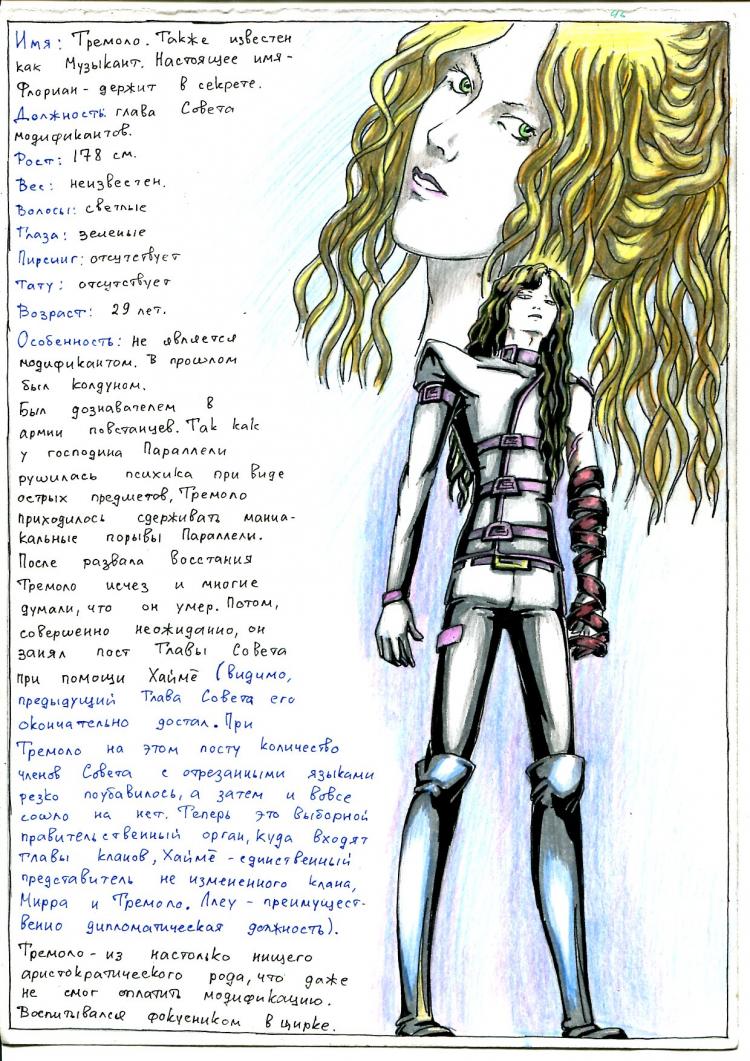 46
Имя: Тремоло. Также известен
как Музыкант. Настоящее имя-
Флориан - держит в секрете.
Должность: глава Совета
модификантов.
Рост: 178 см.
Вес: неизвестен.
Волосы: светлые
Глаза: зеленые
Пирсинг: отсутствует
Тату: отсутствует
Возраст: 29 лет.
Особенность: не является
модификантом. В прошлом
был колдуном.
Был дознавателем в
армии повстанцев. Так как
у господина Параллели
рушилась психика при виде
острых предметов, Тремоло
приходилось сдерживать маниа-
кальные порывы Параллели.
После развала восстания
Тремоло исчез и многие
думали, что он умер. Потом,
совершенно неожиданно, он
занял пост Главы Совета
при помощи Хаймё (видимо,
предыдущий Глава Совета его
окончательно достал. При
Тремоло на этом посту количество
членов Совета с отрезанными языками
резко поубавилось, а затем и вовсе
сошло на нет. Теперь это выборной
правительственный орган, куда входят
главы кланов, Хаймё - единственный
представитель не измененного клана,
Мирра и Тремоло. Ллеу - преимущест-
венно дипломатическая должность).
Тремоло - из настолько нищего
аристократического рода, что даже
не смог оплатить модификацию.
Воспитывался фокусником в цирке.